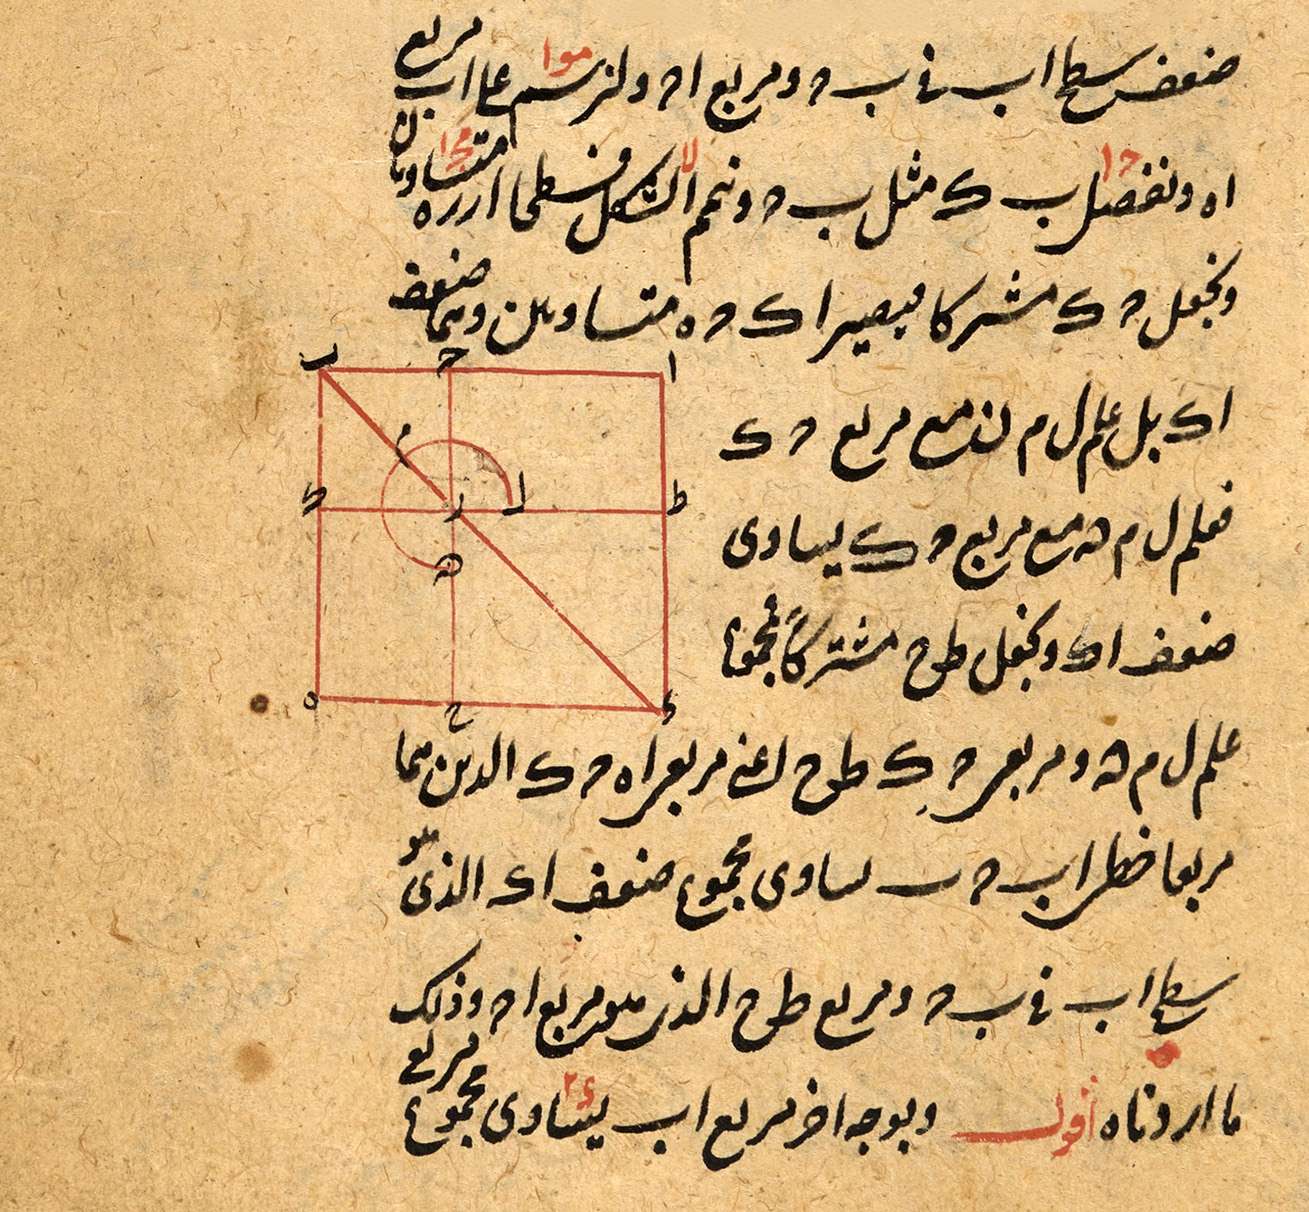 ضعف سطح اب في ب ح ومربع اح ولنرسم على اب مربع
موا
اه ونفصل ب ك مثل ب ح ونتم الشكل فسطحا ار ره متساويان
ح ا
لا
مج ا
ونجعل ح ك مشتركا فيصير اك ح ه متساويين وهما ضعف
اك بل علم ل م ن مع مربع ح ك
فعلم ل م ه مع مربع ح ك يساوى
ضعف اك ونجعل ط ح مشتركاً فمجموع
علم ل م ه ومربعى ح ك ط ح اعنى مربعى اه ح ك الذين هما
مربعا خطى اب ح ب يساوى مجموع ضعف اك الذى هو
سطح اب في ب ح ومربع ط ح الذى هو مربع اح وذلك
ما اردناه اقول وبوجه اخر مربع اب يساوى مجموع مربع
ب
ح
ا
م
ك
ر
ل
ط
ه
ه
ح
د